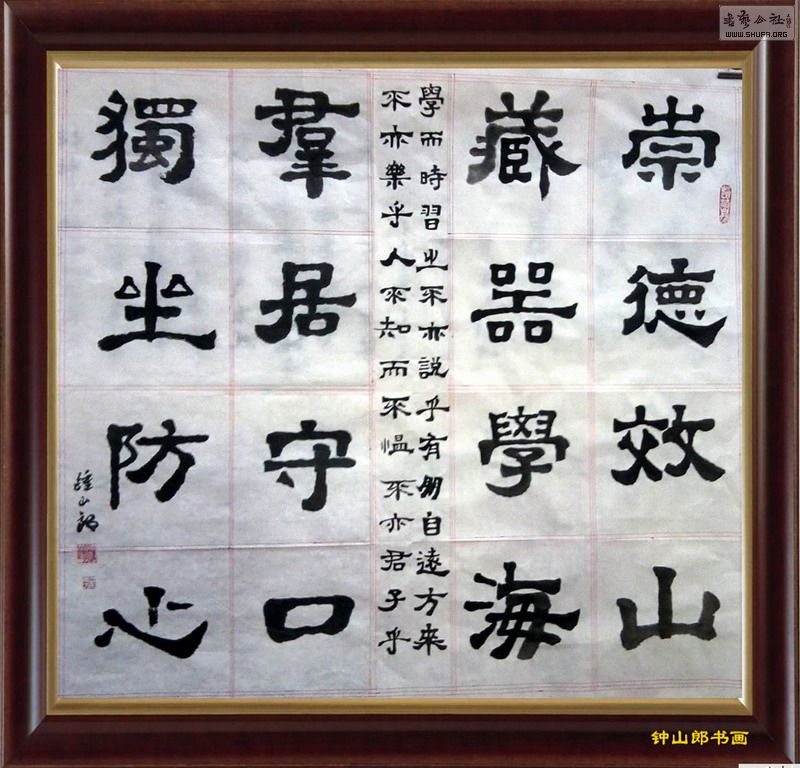 崇德效山
藏器學海
學而時習之不亦説乎有朋自遠方来
不亦樂乎人不知而不愠不亦君子乎
羣居守口
獨坐防心
鍾山郎
書藝公社
WWW.SHUFA.ORG
钟山郎书画